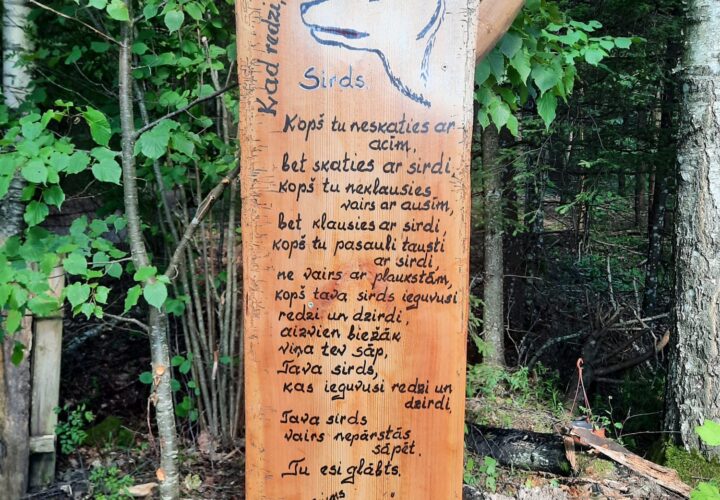 Kad redzi,
Sirds.
Kopš tu neskaties ar
acīm,
bet skaties ar sirdi,
kopš tu neklausies
vairs ar ausīm,
bet klausies ar sirdi,
kopš tu pasauli tausti
ar sirdi,
ne vairs ar plaukstām,
kopš tava sirds ieguvusi
redzi un dzirdi,
aizvien biežāk
viņa tev sāp,
Tava sirds,
kas ieguvusi redzi un
dzirdi.
Tava sirds
vairs nepārstās
sāpēt.
Tu esi glābts.